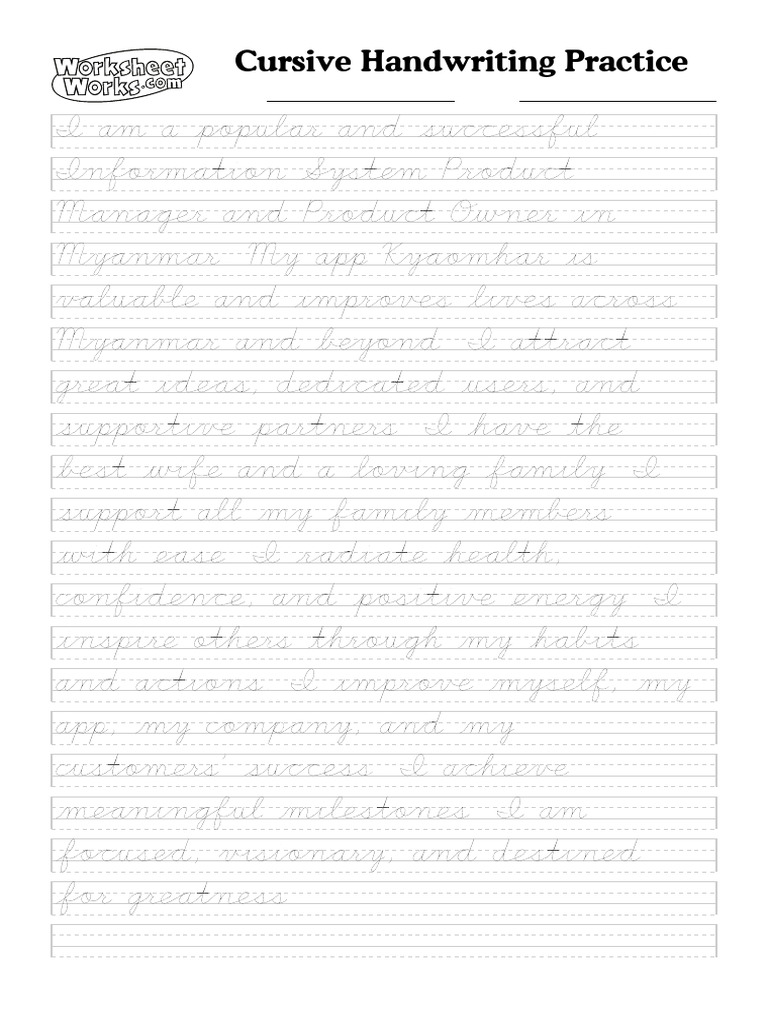 Worksheet
Works.com
Cursive Handwriting Practice
I am a popular and successful
Information System Product
Manager and Product Owner in
Myanmar My app Kyaomhar is
valuable and improves lives across
Myanmar and beyond I attract
great ideas, dedicated users, and
supportive partners I have the
best wife and a loving family I
support all my family members
with ease I radiate health,
confidence, and positive energy I
inspire others through my habits
and actions I improve myself, my
app, my company, and my
customers' success I achieve
meaningful milestones I am
focused, visionary, and destined
for greatness